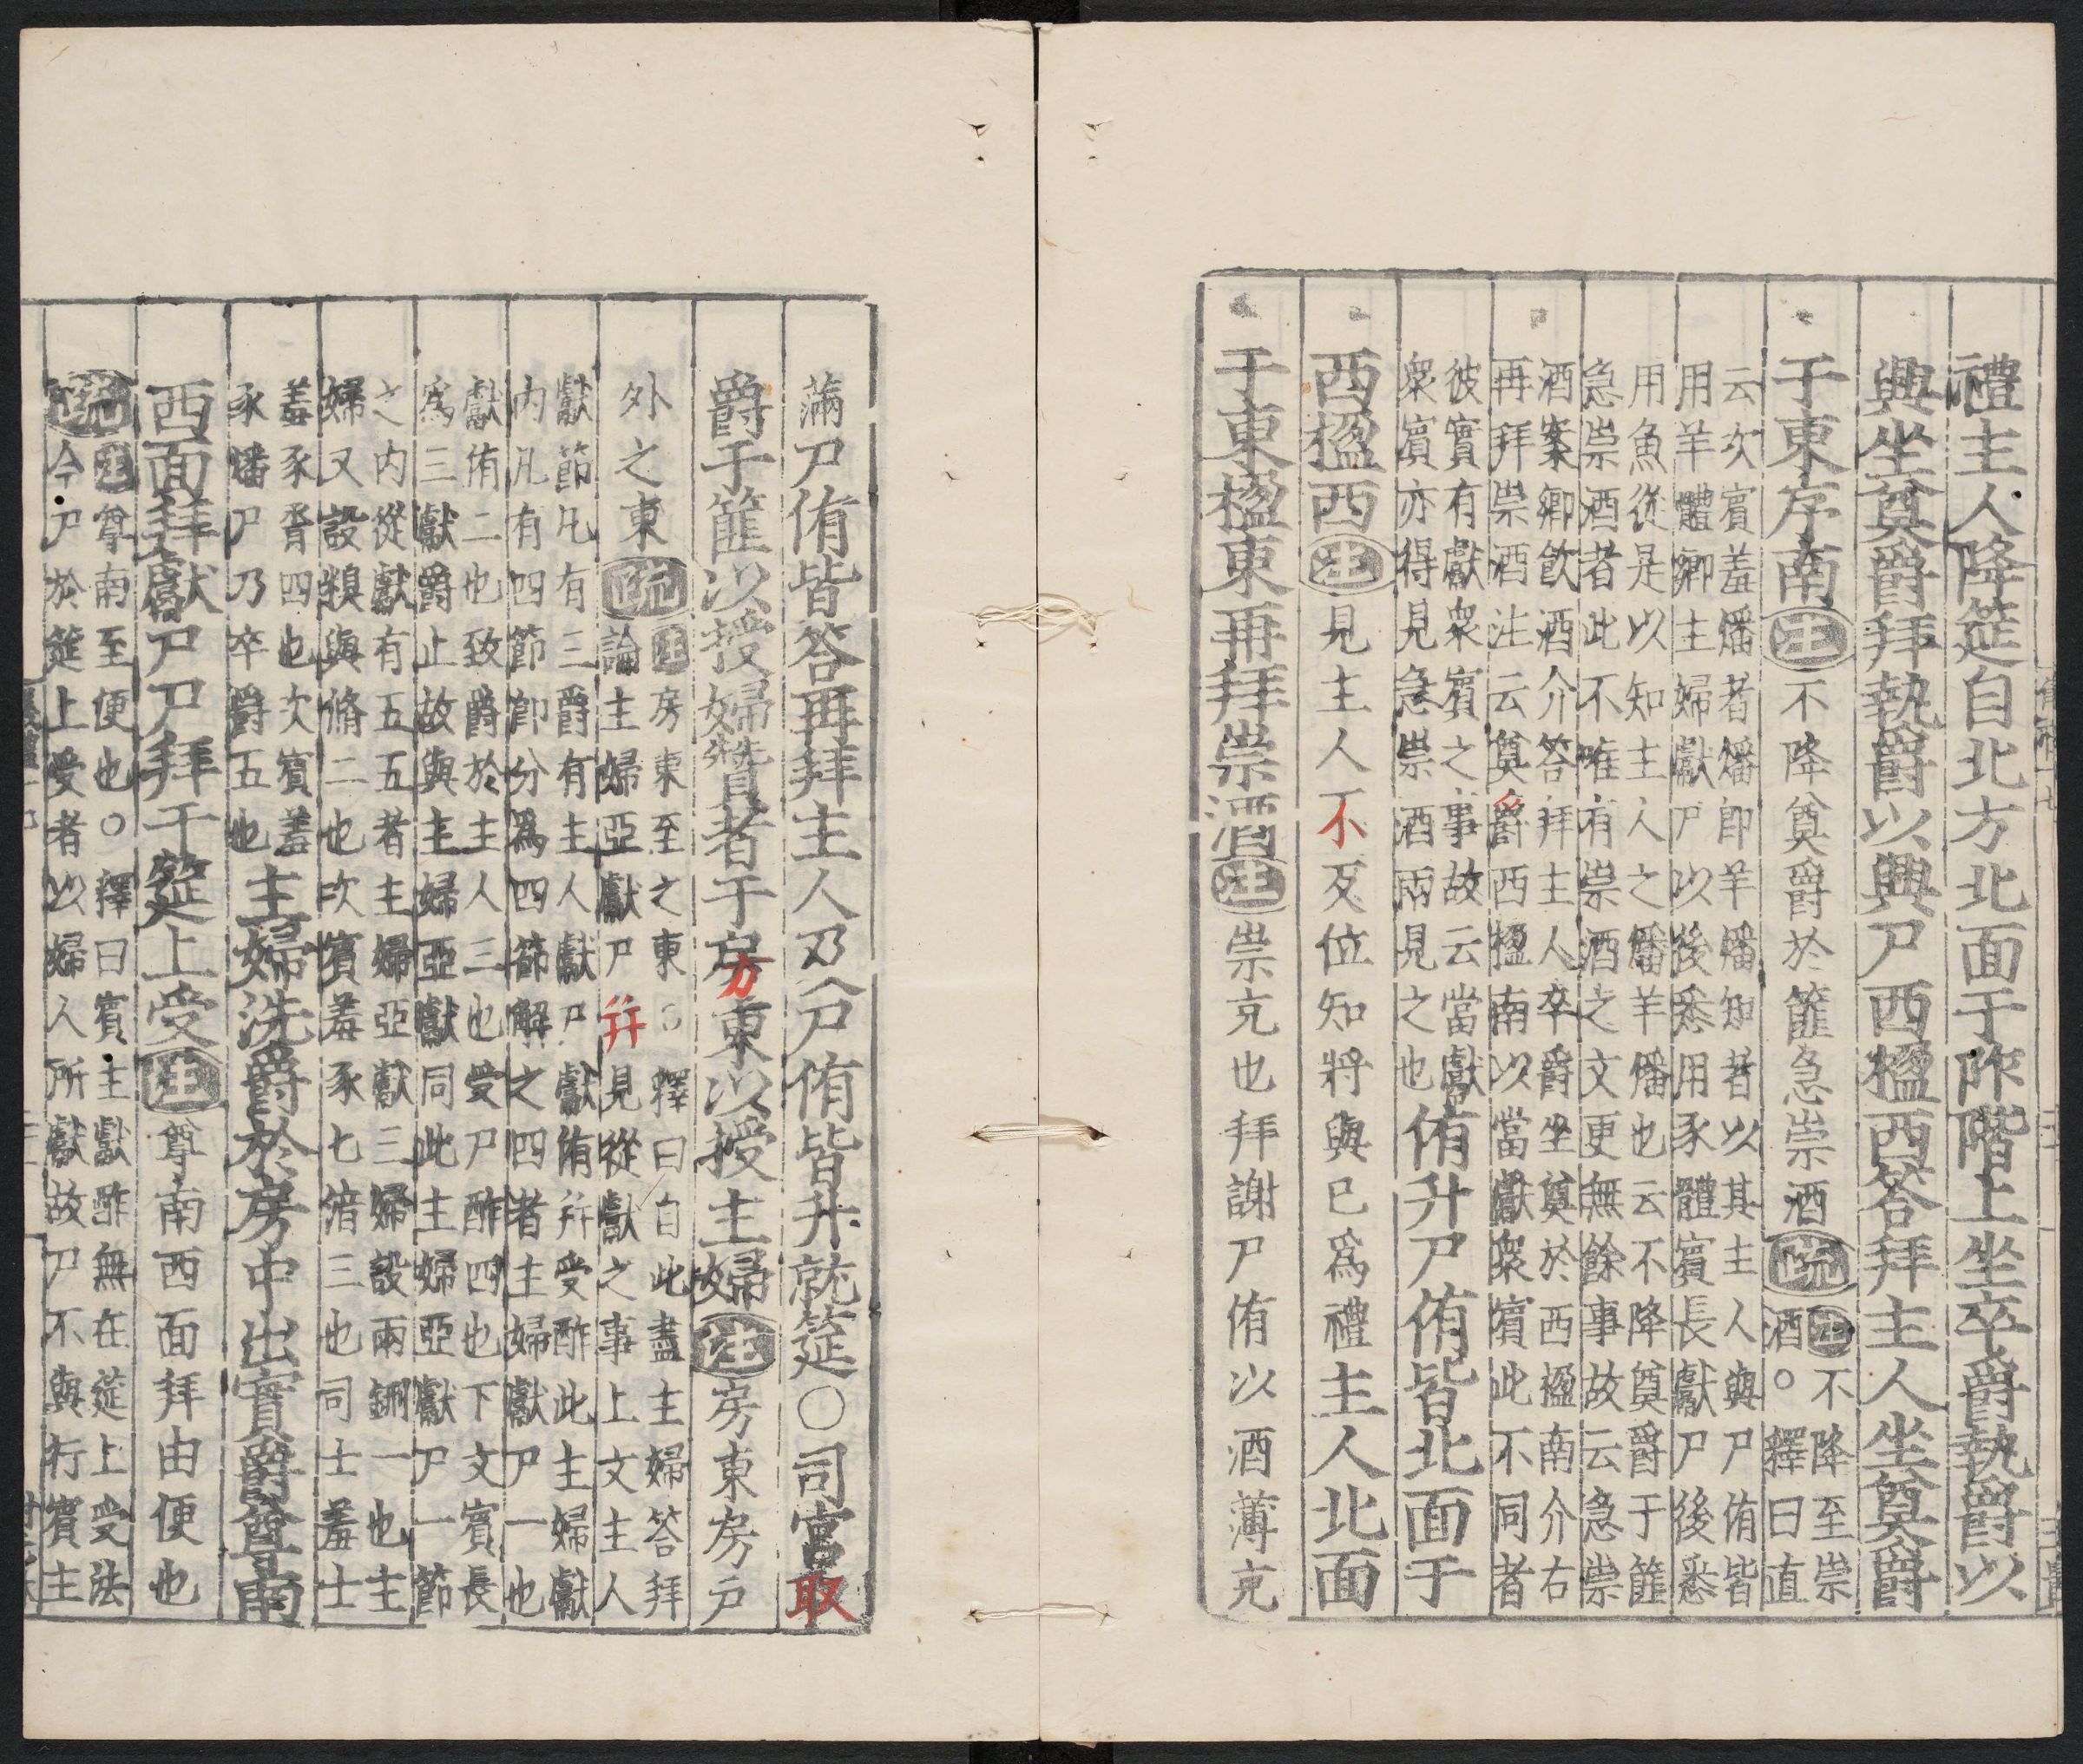 禮主人降筵自北方北面于阼階上坐卒爵執爵以
興坐奠爵拜執爵以興尸西楹西荅拜主人坐奠爵
于東序南注不降奠爵於篚急崇酒疏注不降至崇
酒○釋曰直
云次賓羞燔者燔即羊燔知者以其主人與尸侑皆
用羊體卿主婦獻尸以後悉用豕體賓長獻尸後悉
用魚從是以知主人之燔羊燔也云不降奠爵于篚
急崇酒者此不唯有崇酒之文更無餘事故云急崇
酒案卿飲酒介荅拜主人卒爵坐奠於西楹南介右
再拜崇酒注云奠爵西楹南以當獻衆賓此不同者
彼實有獻衆賓之事故云當獻
衆賓亦得見急崇酒兩見之也侑升尸侑皆北面于
西楹西注見主人不反位知將與已爲禮主人北面
于東楹東再拜崇酒注崇充也拜謝尸侑以酒薄充
滿尸侑皆荅再拜主人及尸侑皆升就筵○司宮取
爵于篚以授婦贊者于房東以授主婦注房東房戶
外之東疏注房東至之東○釋曰自此盡主婦荅拜
論主婦亞獻尸并見從獻之事上文主人
獻節凡有三爵有主人獻尸獻侑并受酢此主婦獻
内凡有四節卽分爲四節解之四者主婦獻尸一也
獻侑二也致爵於主人三也受尸酢四也下文賓長
爲三獻爵止故與主婦亞獻同此主婦亞獻尸一節
之内從獻有五五者主婦亞獻三婦設兩鉶一也主
婦又設糗與脩二也次賓羞豕七湆三也司士羞士
羞豕脀四也次賓羞
豕燔尸乃卒爵五也主婦洗爵於房中出實爵尊南
西面拜獻尸尸拜于筵上受注尊南西面拜由便也
疏注尊南至便也○釋曰賓主獻酢無在筵上受法
今尸於筵上受者以婦人所獻故尸不與行賓主